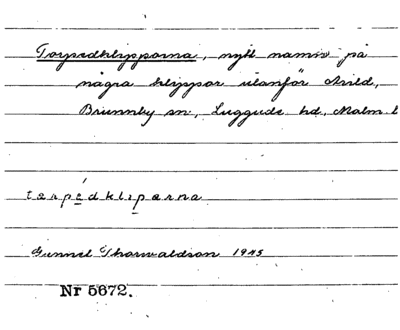 Torpedklipporna, nytt namn på
några klippor utanför Arild,
Brunnby sn, Luggude hd, Malm. l
tårpédklıpərna
Gunnel Thorwaldson 1945
Nr 5672.